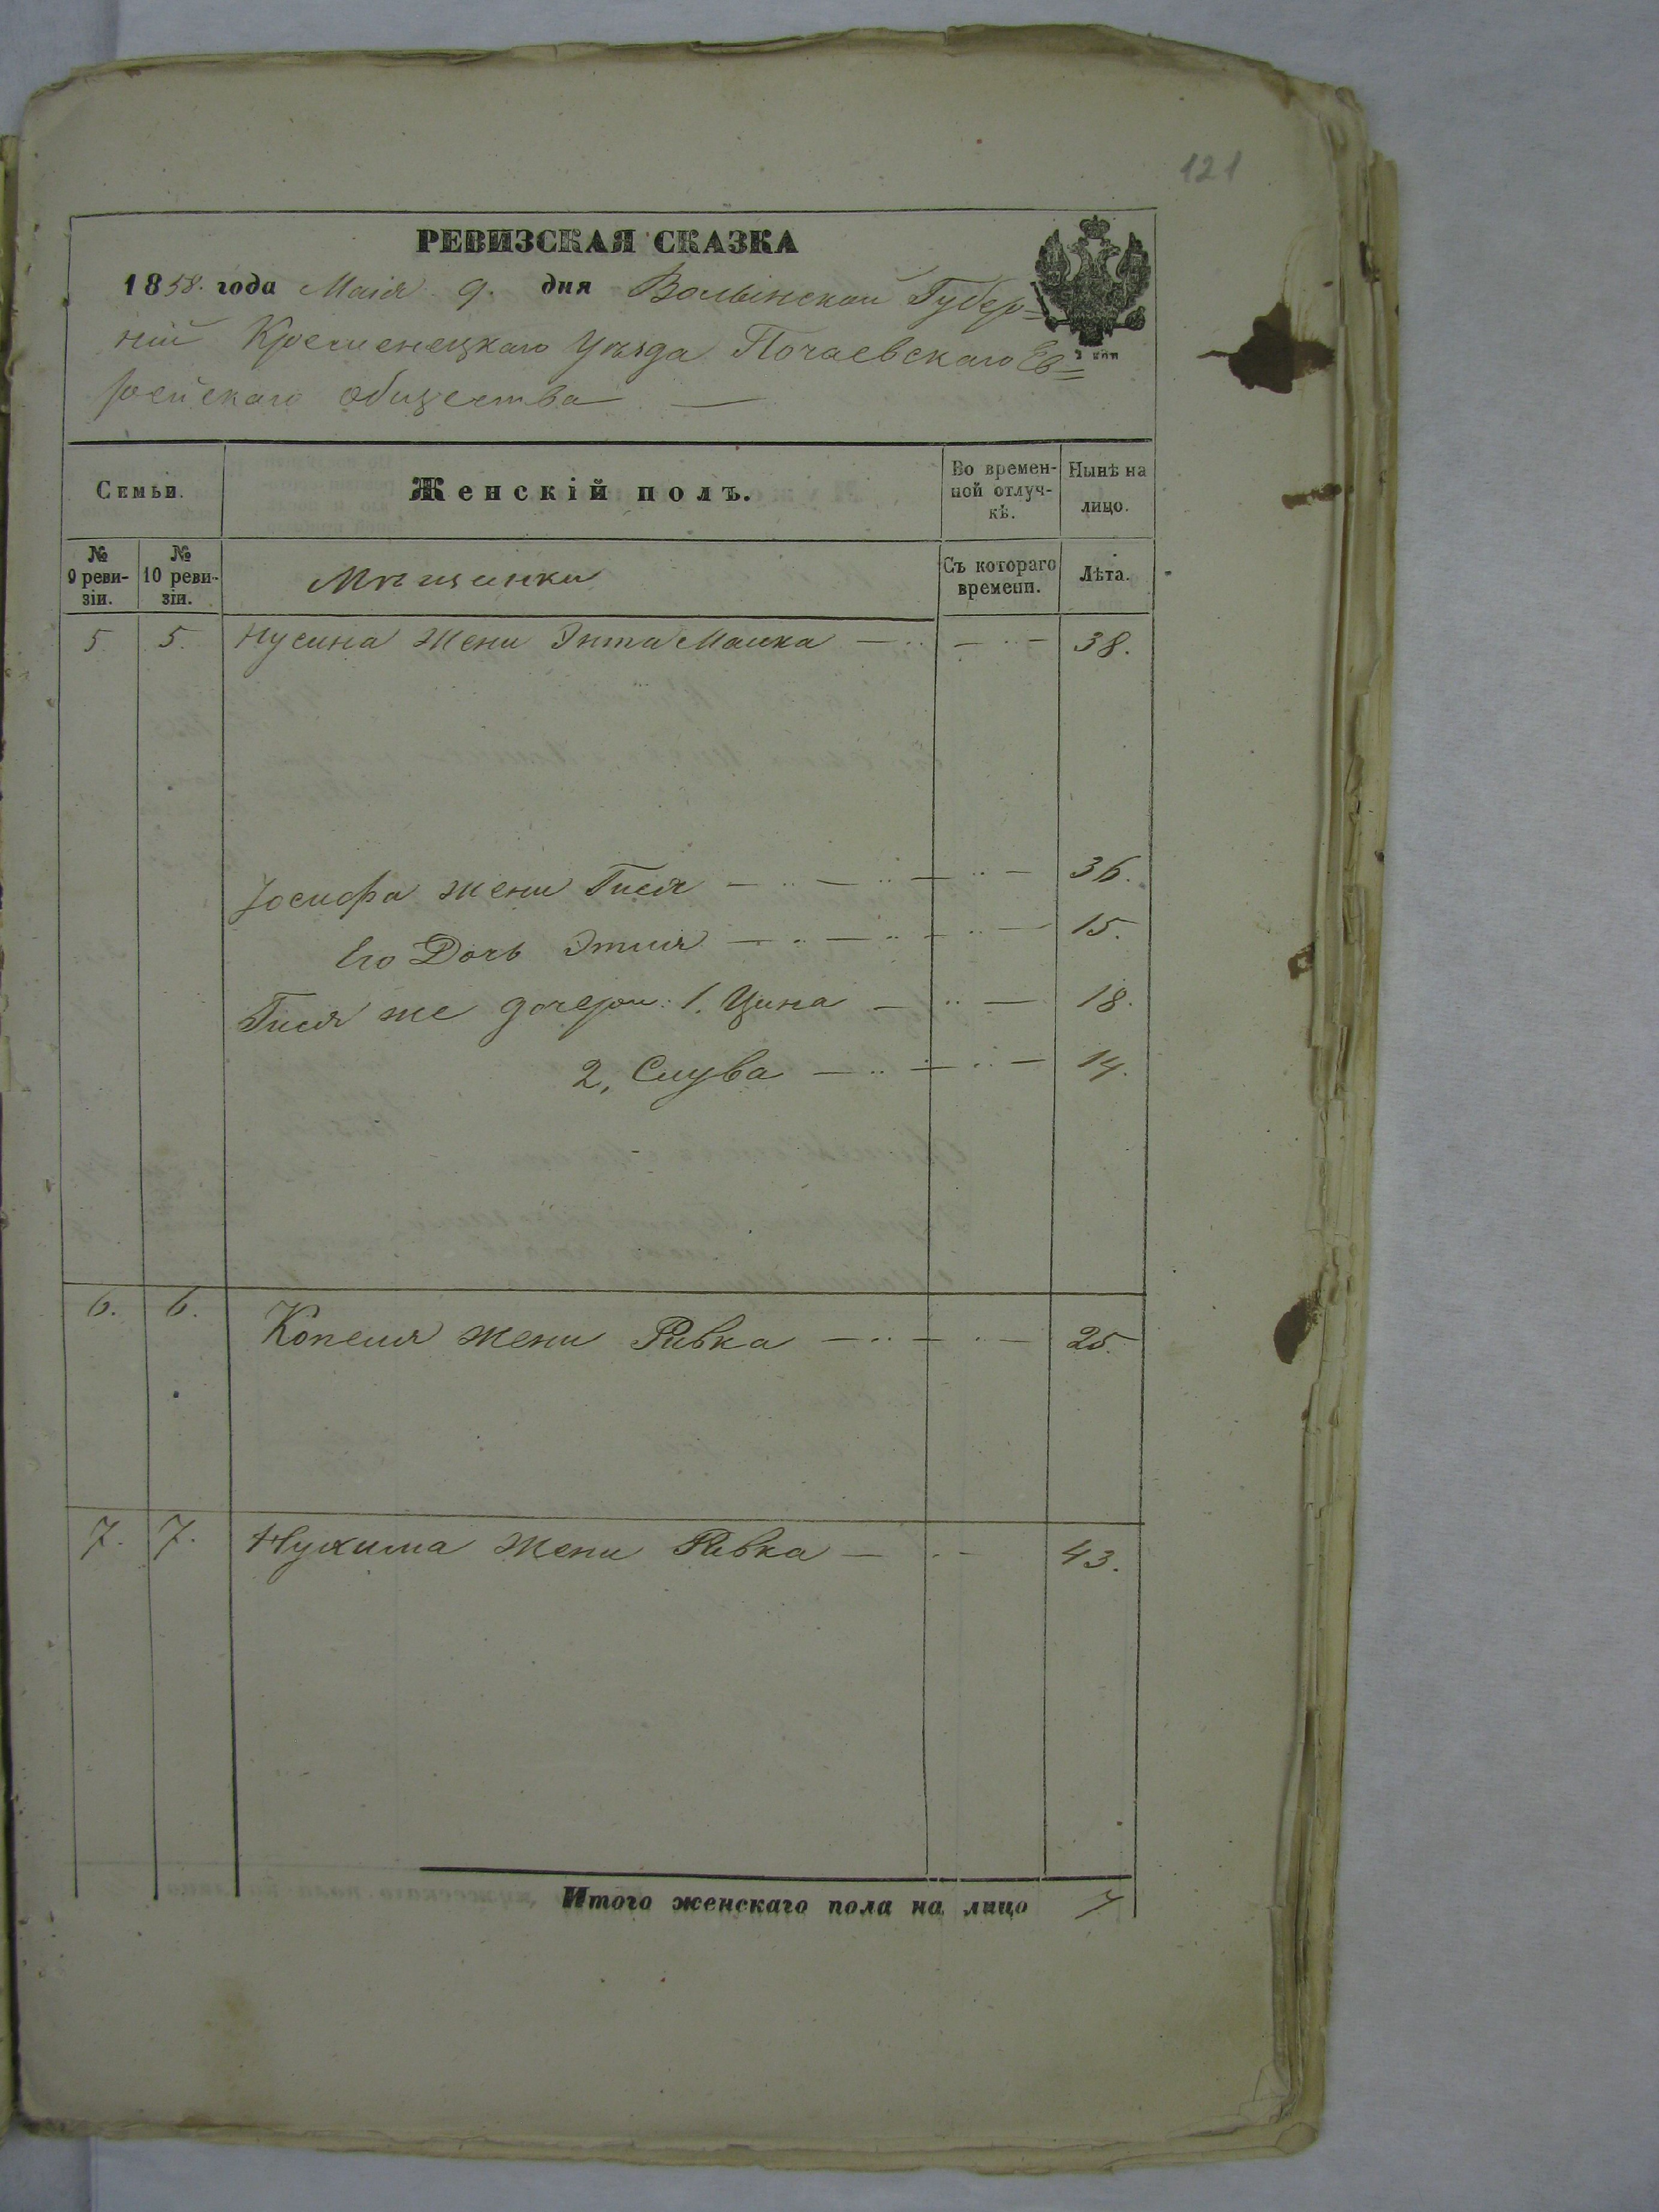 121
РЕВИЗСКАЯ СКАЗКА
1858. года Маія 9. дня Волынской Губер=
ніи Кременецкаго Уѣзда Почаевскаго Ев=
рейскаго общества —
Семьи. Женскій полъ. Во времен- Нынѣ на
ной отлуч- лицо.
кѣ.
№ № Мѣщанки Съ котораго Лѣта.
9 реви- 10 реви- времени.
зіи. зіи.
5 5. Нусина жена Энта Малка 38.
Іосифа жена Гися 36.
Его Дочь Этля 15.
Гися же дочери: 1. Цина 18.
2, Слува 14.
6. 6. Копеля жена Ривка 25.
7. 7. Нухима жена Ривка 43.
Итого женскаго пола на лицо 7